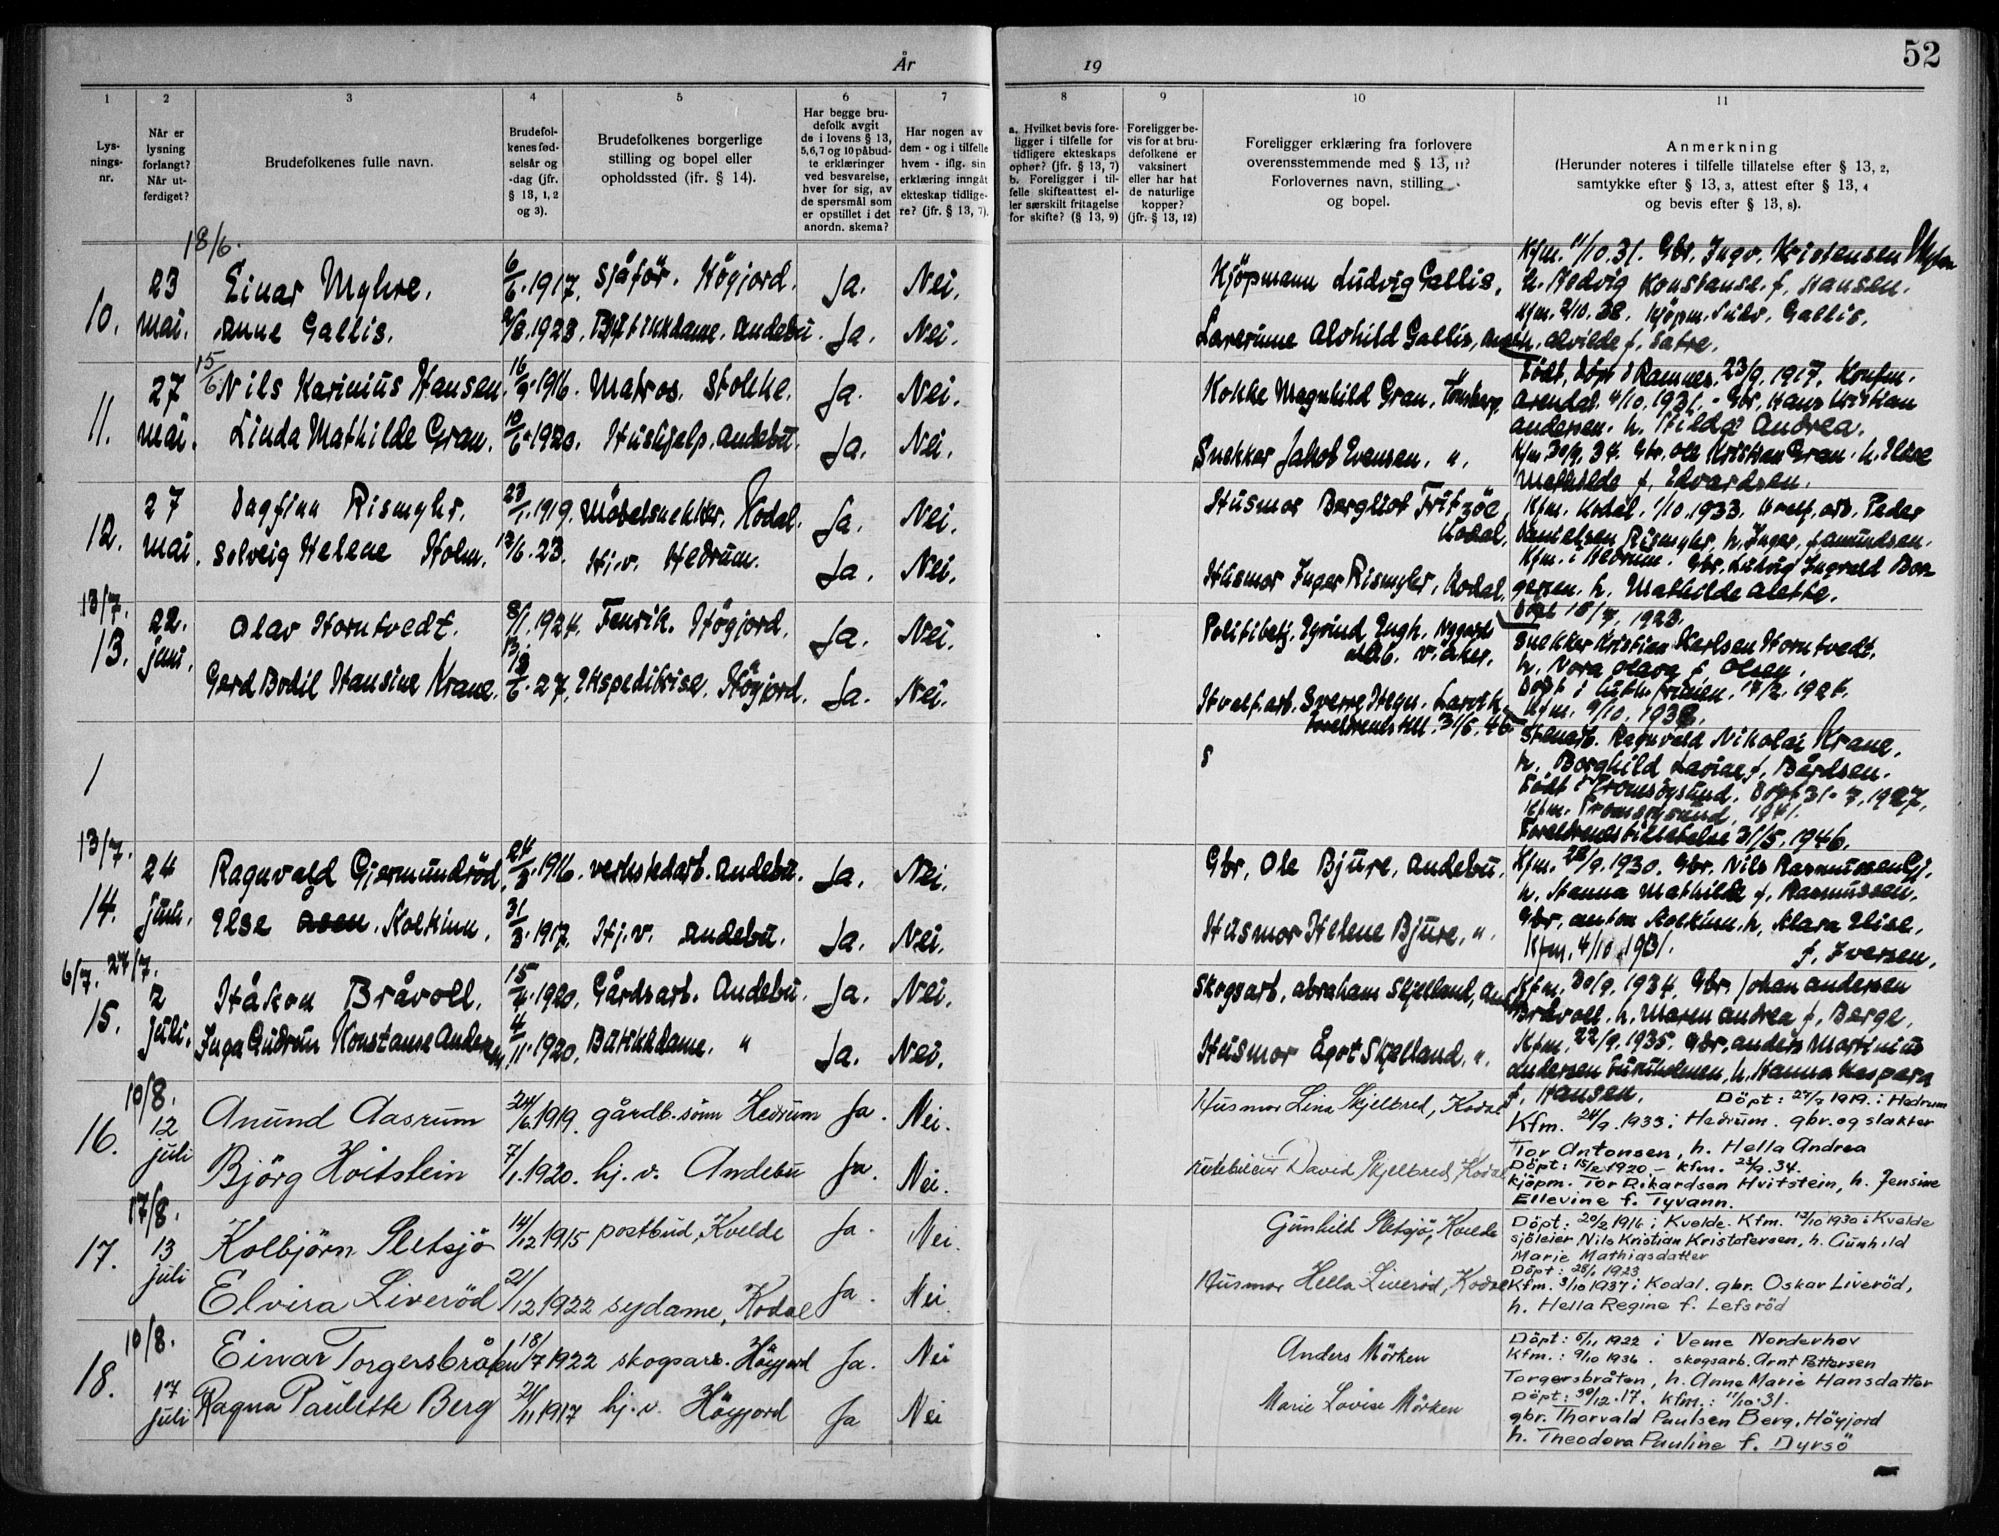 År
19
52
1
2
3
4
5
6
7
8
9
10
11
Lys-
nings-
nr.
Når er
lysning
forlangt?
Når ut-
ferdiget?
Brudefolkenes fulle navn.
Brudefol-
kenes fød-
selsår og
-dag (jfr.
§ 13, 1, 2
og 3).
Brudefolkenes borgerlige
stilling og bopel eller
opholdssted (jfr. § 14).
Har begge bru-
defolk avgit
de i lovens § 13,
5, 6, 7 og 10 påbud-
te erklæringer
ved besvarelse,
hver for sig, av
de spørsmål som
er opstillet i det
anordn. skema?
Har nogen av
dem - og i tilfelle
hvem - iflg. sin
erklæring inngåt
ekteskap tidlige-
re? (jfr. § 13, 7).
a. Hvilket bevis fore-
ligger i tilfelle for
tidligere ekteskaps
ophør? (jfr. § 13, 7)
b. Foreligger i til-
felle skifteattest el-
ler særskilt fritagelse
for skifte? (§ 13, 9)
Foreligger be-
vis for at bru-
defolkene er
vaksinert
eller har hat
de naturlige
kopper?
(jfr. § 13, 12)
Foreligger erklæring fra forlovere
overensstemmende med § 13, 11?
Forlovernes navn, stilling
og bopel.
Anmerkning
(Herunder noteres i tilfelle tillatelse efter § 13, 2,
samtykke efter § 13, 3, attest efter § 13, 4
og bevis efter § 13, 8).
18/6.
10. 23 mai. Einar Myhre. 6/6.1917. Sjåför. Högjord. Ja. Nei. Kjöpmann Ludvig Gallis,
Anne Gallis. 1923. Butikkdame. Andebu. Ja. Nei. Alvhild Gallis,
Kfm. 11/10.31. Gbr. Ingv. Kristensen
h. Hedvig Konstanse f. Hansen.
Kfm. 2/10.38. Kjöpm. Ludv. Gallis,
h. Alvilde f. Sætre.
15/6
11. 27 mai. Nils Karinius Hansen. 16/9.1916. Matros. Stokke. Ja. Nei. Kokke Magnhild Gran, Tönsberg
Linda Mathilde Gran. 10/6.1920. Hushjelp. Andebu. Ja. Nei. Snekker Jakob Evensen. "
Födt, döpt i Ramnes. 23/9.1917. Konfm.
Arendal. 4/10.1931. - Gbr. Hans Kristian
Andersen. h. Hilda Andrea.
Kfm. 30/9.34. Gbr. Ole Kristian Gran. h. Elise
Mathilde f. Edvardsen.
12. 27 mai. Dagfinn Rismyhr. 23/1.1919. Möbelsnekker. Kodal. Ja. Nei. Husmor Bergliot Fritzöe, Kodal,
Solveig Helene Holm. 12/6.23. Hj.v. Hedrum. Ja. Nei. Husmor Inger Rismyhr, Kodal.
Kfm. Kodal. 1/10.1933. Hvalf. arb. Peder
Danielsen Rismyhr, h. Inger, f. Amundsen.
Kfm. i Hedrum. Gbr. Ludvig Ingvald Bor-
gersen. h. Mathilde Alette.
13/7.
13. 22. juni. Olav Horntvedt. 8/1.1924. Fenrik. Högjord. Ja. Nei. Politibetj. Eyvind Engh,
Gerd Bodil Hansine Krane. 13/6.27. Ekspeditrise. Högjord. Ja. Nei. Hvalf.arb. Sverre Hegn. Larvik
Foreldrenes till. 31/5.46
Snekker Kristian Karlsen Horntvedt.
h. Nora Olava f. Olsen.
Kfm. 9/10.1938.
Stenarb. Ragnvald Nikolai Krane,
h. Borghild Lavine f. Bårdsen.
Födt i Tromsöysund. Döpt 31.7.1927,
Kfm. Tromsöysund, 1941.
Foreldrenes tillatelse 31/5.1946.
13/7.
14. 24 juni. Ragnvald Gjermundröd. 24/3.1916. verkstedarb. Andebu. Ja. Nei. Gbr. Ole Bjure, Andebu.
Else Aaen. Kolkinn. 31/3.1917. Hj.v. Andebu. Ja. Nei. Husmor Helene Bjure, ".
Kfm. 28/9.1930. Gbr. Nils Rasmussen Gj.
h. Hanna Mathilde f. Rasmussen.
Gbr. Anton Kolkinn. h. Klara Elise,
Kfm. 4/10.1931. f. Iversen.
6/7. 27/7.
15. 2 juli. Håkon Bråvoll. 15/4.1920. Gårdsarb. Andebu. Ja. Nei. Skogsarb. Abraham Skjelland,
Inga Gudrun Konstanse Andersen 4/11.1920. Butikkdame. " Ja. Nei. Husmor Ågot Skjelland. ".
Kfm. 30/9.1934. Gbr. Johan Andersen
Bråvoll. h. Maren Andrea f. Berge.
Kfm. 22/9.1935. Gbr. Anders Martinius
Andersen h. Hanna Kaspara
f. Hansen.
10/8.
16. 12 juli Anund Aasrum 24/6.1919. gårdb. sönn Hedrum Ja. Nei. Husmor Lina Skjelbred, Kodal
Björg Hvitstein 7/1.1920. hj. v. Andebu Ja. Nei. David Skjelbred, Kodal
Döpt: 27/7 1919. i Hedrum
Kfm. 24/9.1933 i Hedrum. gbr. og slakter
Tor Antonsen, h. Hella Andrea
Döpt: 15/2 1920 - Kfm. 23/9.34.
kjöpm. Tor Rikardsen Hvitstein, h. Jensine
Ellevine f. Tyvann.
17/8.
17. 13 juli Kolbjörn Sletsjö 14/12 1915 postbud, Kvelde Ja. Nei. Gunhild Sletsjö, Kvelde
Elvira Liveröd 21/12 1922 sydame, Kodal Ja. Nei. Husmor Hella Liveröd, Kodal
Döpt: 20/2 1916 i Kvelde. Kfm. 12/10 1930 i Kvelde
sjöleier Nils Kristian Kristofersen, h. Gunhild
Marie Mathiasdatter
Döpt: 28/1 1923
Kfm. 3/10 1937 i Kodal. gbr. Oskar Liveröd,
h. Hella Regine f. Lefsröd
10/8.
18. 17 juli Einar Torgersbråten 18/7 1922 skogsarb. Höyjord Ja. Nei Anders Mörken
Ragna Paulette Berg 21/11 1917 hj. v. Höyjord Ja Nei Marie Lovise Mörken
Döpt: 5/11 1922 i Veme Norderhov
Kfm.: 9/10 1936. skogsarb. Arnt Pettersen
Torgersbråten, h. Anne Marie Hansdatter
Döpt: 30/12.17. Kfm.: 11/10.31.
gbr. Thorvald Paulsen Berg, Höyjord
h. Theodora Pauline f. Dyrsö